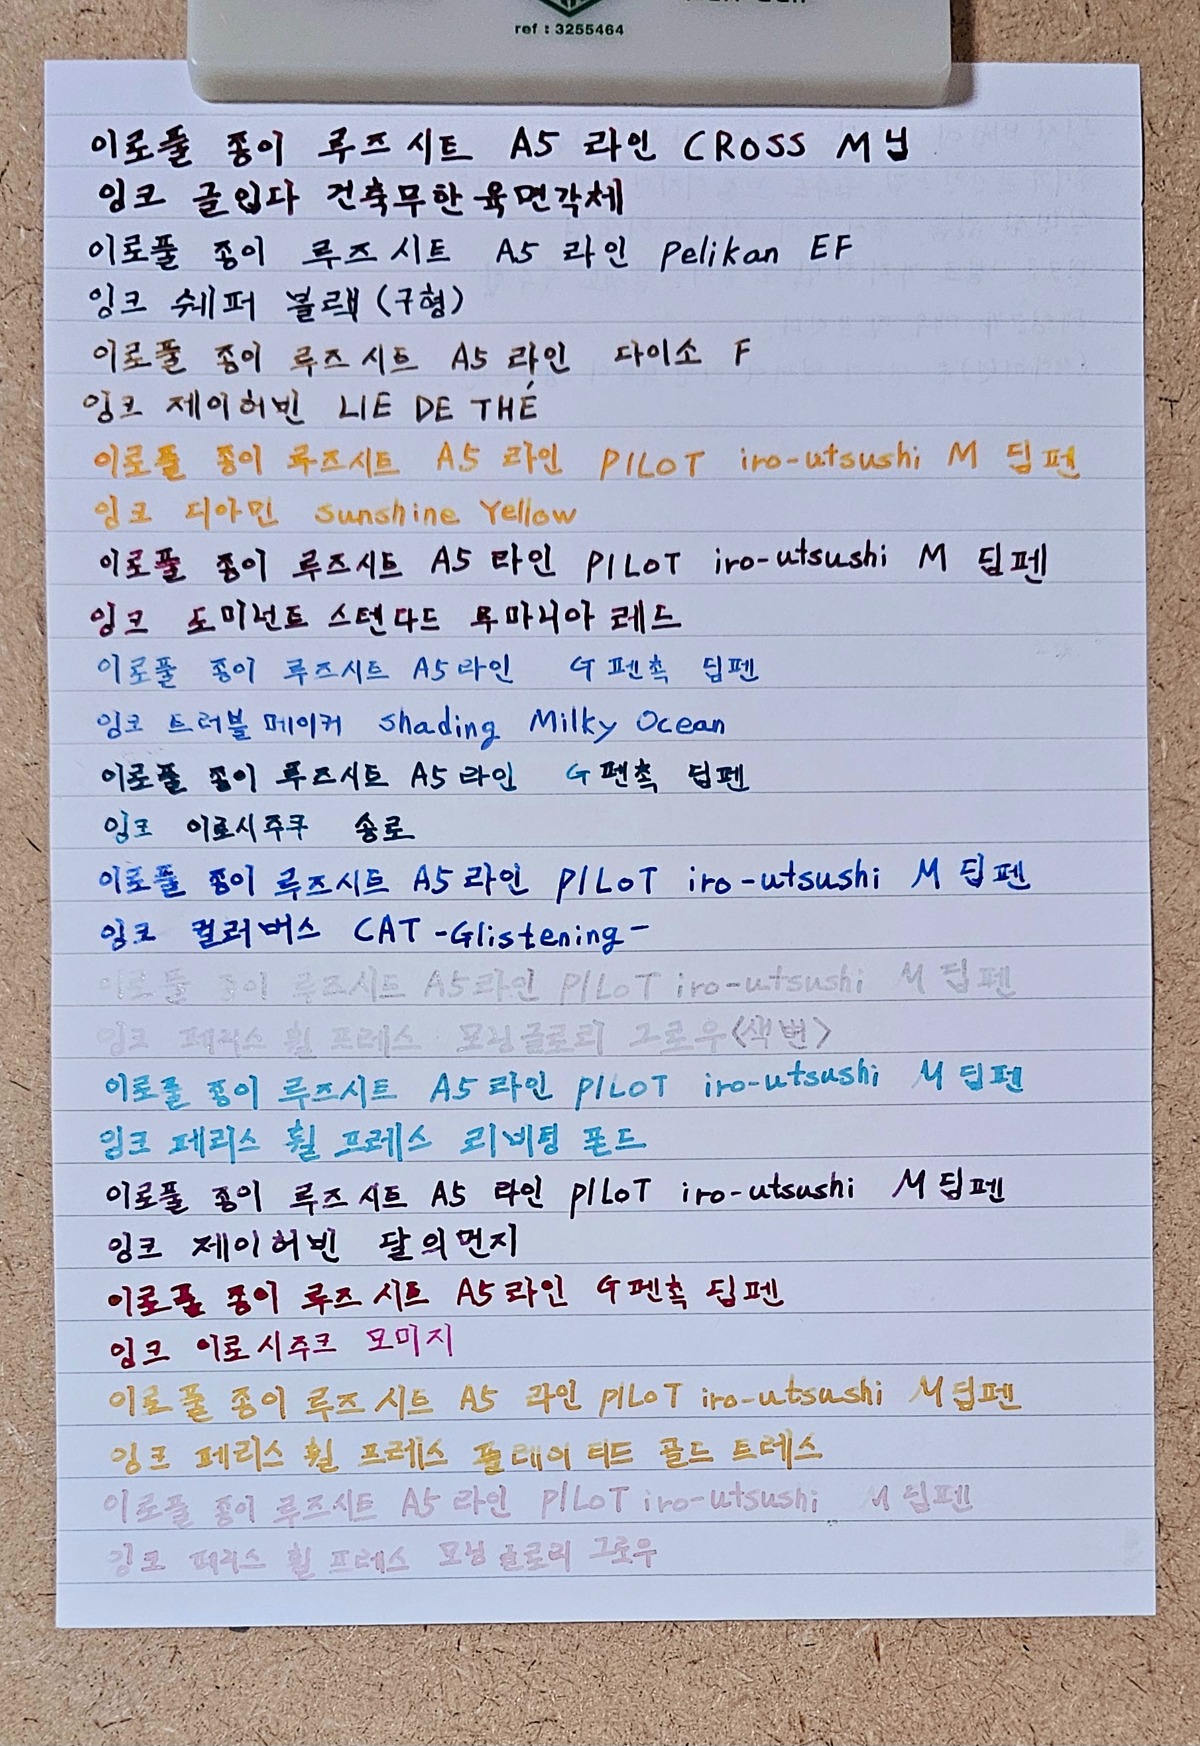 ref : 3255464
이로풀 종이 루즈시트 A5 라인 CROSS M닙
잉크 글입다 건축무한육면각체
이로풀 종이 루즈시트 A5 라인 Pelikan EF
잉크 쉐퍼 블랙(구형)
이로풀 종이 루즈시트 A5 라인 다이소 F
잉크 제이허빈 LIE DE THÉ
이로풀 종이 루즈시트 A5 라인 PILOT iro-utsushi M 딥펜
잉크 디아민 Sunshine Yellow
이로풀 종이 루즈시트 A5 라인 PILOT iro-utsushi M 딥펜
잉크 도미넌트 스텐다드 루마니아 레드
이로풀 종이 루즈시트 A5라인 G펜촉 딥펜
잉크 트러블메이커 Shading Milky Ocean
이로풀 종이 루즈시트 A5라인 G펜촉 딥펜
잉크 이로시주쿠 송로
이로풀 종이 루즈시트 A5라인 PILOT iro-utsushi M 딥펜
잉크 컬러버스 CAT -Glistening-
이로풀 종이 루즈시트 A5라인 PILOT iro-utsushi M 딥펜
잉크 페리스 휠 프레스 모닝글로리 그로우<색변>
이로풀 종이 루즈시트 A5라인 PILOT iro-utsushi M 딥펜
잉크 페리스 휠 프레스 리비팅 폰드
이로풀 종이 루즈시트 A5 라인 PILOT iro-utsushi M딥펜
잉크 제이허빈 달의먼지
이로풀 종이 루즈시트 A5라인 G펜촉 딥펜
잉크 이로시주쿠 모미지
이로풀 종이 루즈시트 A5 라인 PILOT iro-utsushi M딥펜
잉크 페리스 휠 프레스 플레이티드 골드 트레스
이로풀 종이 루즈시트 A5라인 PILOT iro-utsushi M 딥펜
잉크 페리스 휠 프레스 모닝글로리 그로우